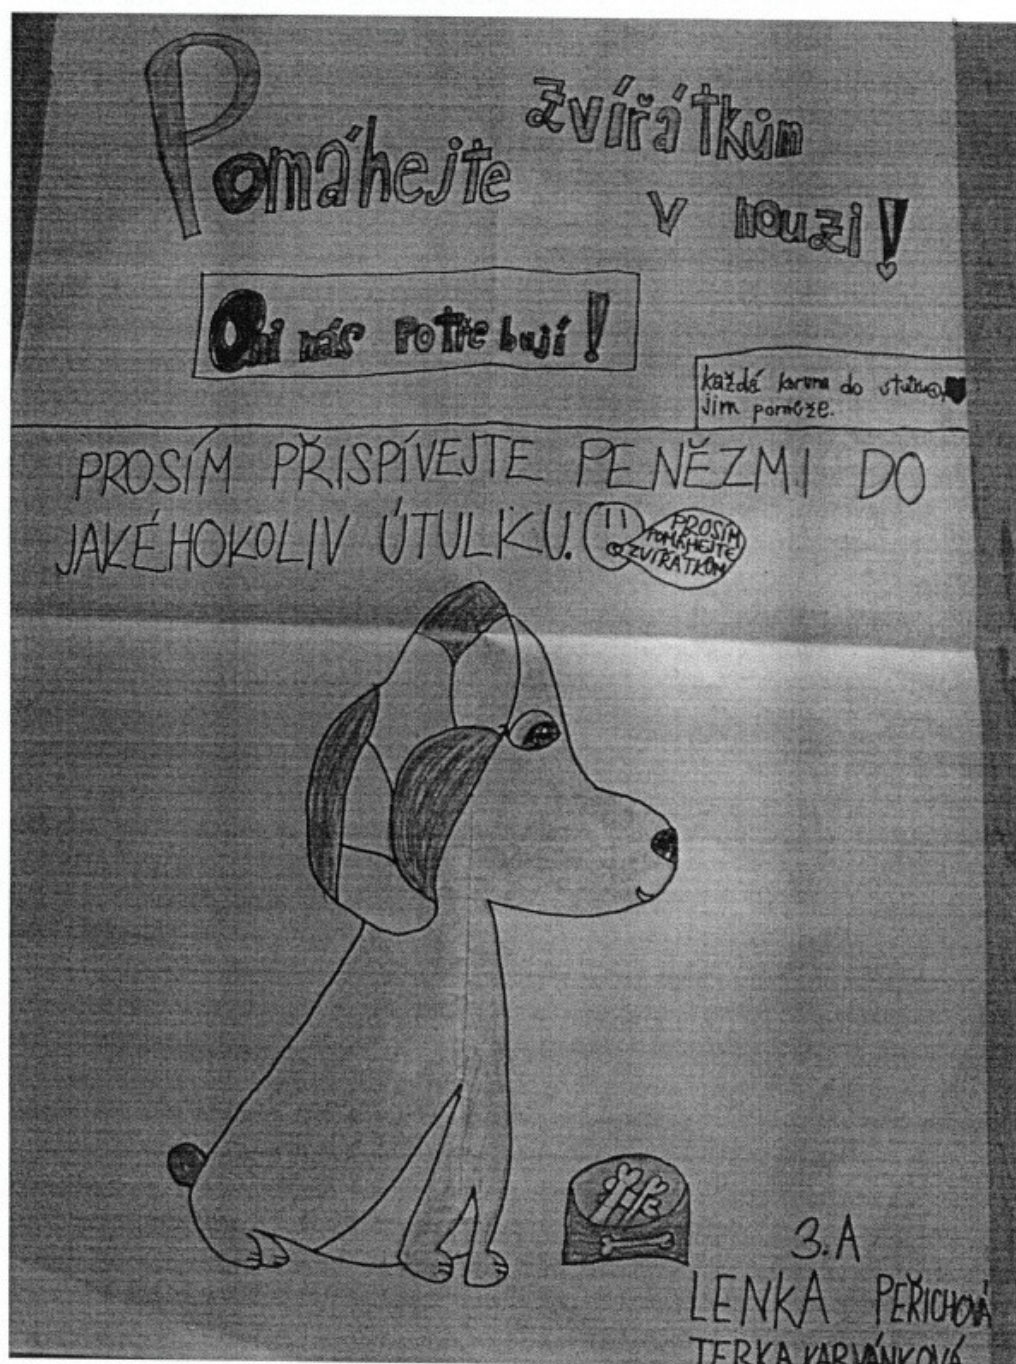 Pomáhejte zvířátkům
v nouzi!
Oni nás potřebují!
každá koruna do útulku
jim pomůže.
PROSÍM PŘISPÍVEJTE PENĚZMI DO
JAKÉHOKOLIV ÚTULKU.
PROSÍM
POMÁHEJTE
ZVÍŘÁTKŮM
3.A
LENKA PEŘICHOVÁ
TERKA